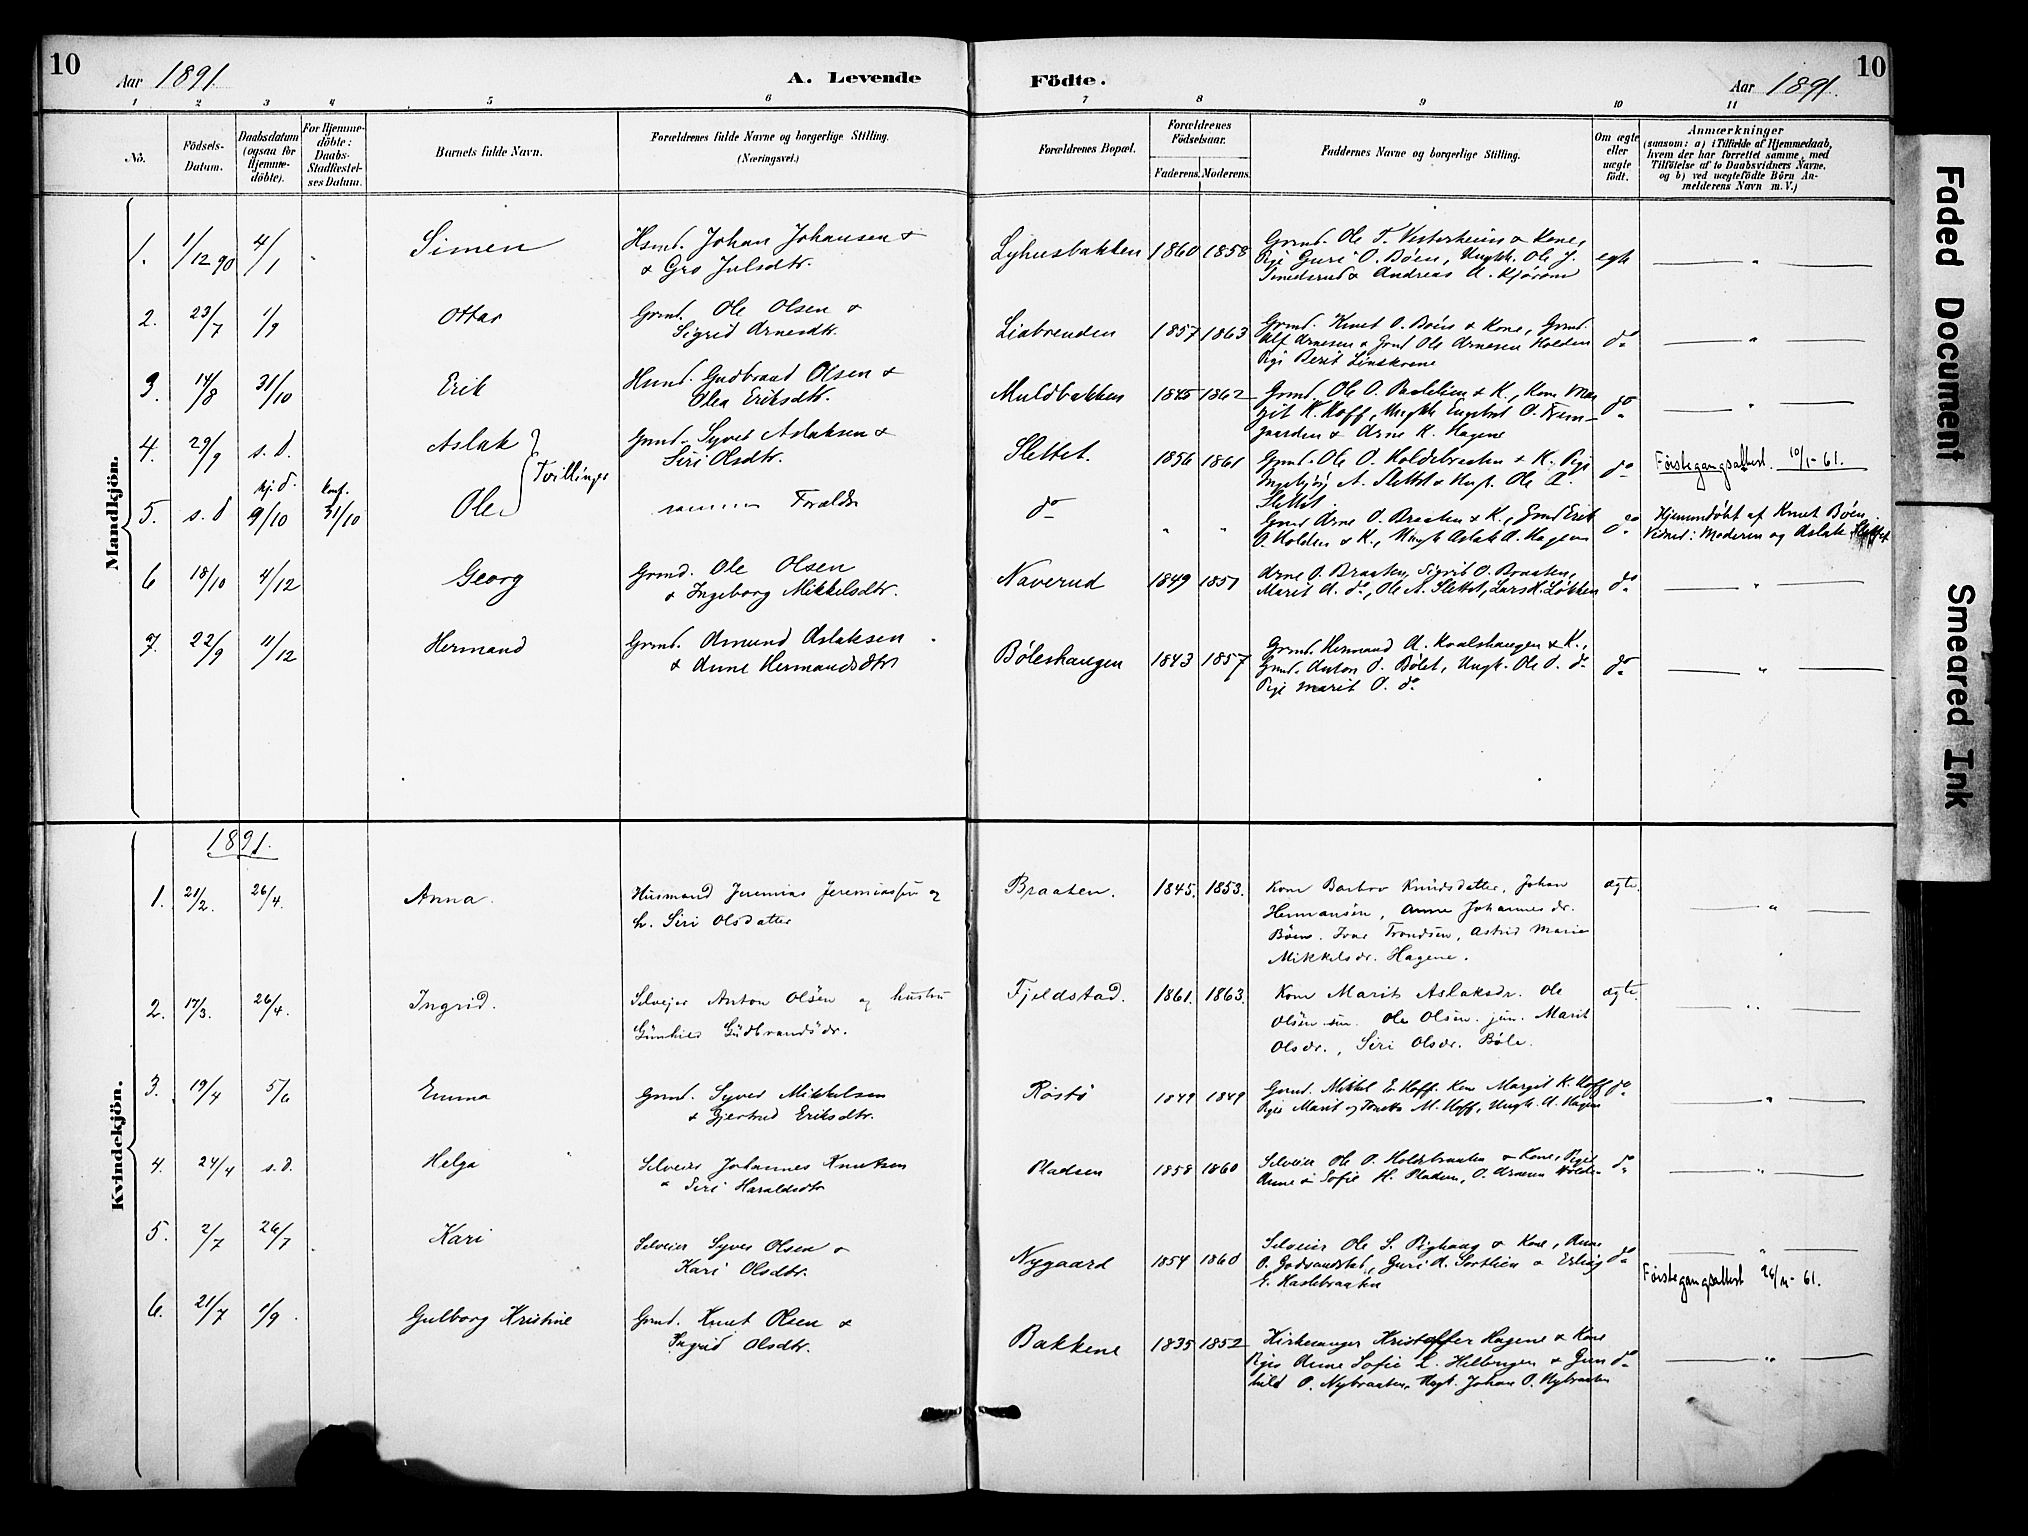 10
Aar 1891.
A. Levende
Födte.
Aar 1891.
10
1 2 3 4 5 6 7 8 9 10 11
No.
Födsels-
Datum.
Daabsdatum
(ogsaa for
Hjemme-
döbte).
For Hjemme-
döbte:
Daabs-
Stadfæstel-
ses Datum.
Barnets fulde Navn.
Forældrenes fulde Navne og borgerlige Stilling.
(Næringsvei.)
Forældrenes Bopæl.
Forældrenes
Födselsaar.
Faderens. Moderens.
Faddernes Navne og borgerlige Stilling.
Om ægte
eller
uægte
födt.
Anmærkninger
(saasom: a) i Tilfælde af Hjemmedaab,
hvem der har forrettet samme, med
Tilföielse af to Daabsvidners Navne,
og b) ved uægtefödte Börn An-
melderens Navn m. V.)
Mandkjön.
1. 1/12 90 4/1 Simen
Hsmd. Johan Johansen &
& Gro Julsdtr.
Lyhusbakken 1860 1858
Grmd. Ole T. Vesterheim & Kone,
Pige Guri O. Bøen, Ungk. Ole J.
Smedsrud & Andreas A. Kjørom
egte
2. 23/7 1/9 Ottar
Grmd. Ole Olsen &
Sigrid Arnesdtr.
Liabrenden 1857 1863
Grmd. Knut O. Bøen & Kone, Grmd.
Alf Arnesen & Grmd Ole Arnesen Holden
Pige Berit Linskrene
do
3. 14/8 31/10 Erik
Hsmd. Gudbrand Olsen &
Olea Eriksdtr.
Muldbakken 1845 1862
Grmd. Ole O. Baalelien & K., Kone Mar
git K. Hoff, Ungk. Engebret O. Frem-
gaarden & Arne K. Hagene
do
4. 29/9 s. d. Aslak
Grmd. Syver Aslaksen &
Siri Olsdtr.
Tvillinger
Slettet. 1856 1861
Grmd. Ole O. Holdebraaten & K. Pige
Ingebjørg A. Slettet & Ungk. Ole A.
Slettet
do
Förstegangsattest. 10/1-61.
5. s. d hj. d. 9/10 konf. 31/10 Ole
samme Foreldre
do " "
Grmd Arne O. Braaten & K., Grmd Erik
O. Holden & K., Ungk Aslak A. Hagene
do
Hjemmedøbt af Knut Bøen.
Vidner: Moderen og Aslak Slettet
6 18/10 4/12 Georg
Grmd. Ole Olsen
& Ingeborg Mikkelsdtr.
Naverud 1849 1851
Arne O. Braaten, Sigrid O. Braaten,
Marit A. do, Ole A. Slettet, Lars K. Løkken
do
7. 22/9 11/12 Hermand
Grmd. Amund Aslaksen
& Anne Hermandsdtr
Bøleshaugen 1843 1857
Grmd. Hermand A. Kvalshaugen & K.,
Grmd. Anton O. Bølet, Ungk. Ole O. do
Pige Marit O. do
do
Kvindekjön.
1891.
1. 21/2. 26/4. Anna.
Husmand Jeremias Jeremiassen og
h. Siri Olsdatter
Braaten. 1845. 1853.
Kone Barbro Knudsdatter, Johan
Hermansen, Anne Johannesdr.
Bøen. Iver Trondsen, Astrid Marie
Mikkelsdr. Hagene.
ægte.
2. 17/3. 26/4. Ingrid.
Selvejer Anton Olsen og hustru
Gunhild Gudbrandsdr.
Fjeldstad. 1861. 1863.
Kone Marit Aslaksdr. Ole
Olsen sen. Ole Olsen jun. Marit
Olsdr., Siri Olsdr. Bøle.
ægte.
3. 19/4 5/6 Emma
Grmd. Syver Mikkelsen
& Gjertrud Eriksdtr.
Røstø 1849 1849
Grmd. Mikkel E. Hoff. Kone Margit K. Hoff
Pige Marit og M. Hoff, Ungk. A. Hagene
do
4. 24/4 s. d. Helga
Selveier Johannes Knutsen
& Siri Haraldsdtr
Pladsen 1858 1860
Selveier Ole O. Holdebraaten & Kone, Piger
Anne & Sofie H. Pladsen, O. Arnesen Holden
do
5. 2/7 26/7 Kari
Selveier Syver Olsen &
Kari Olsdtr.
Nygaard 1854 1860
Selveier Ole S. Bighaug & Kone, Anne
O. Godsandstad, Guri A. Sortlien & Erling
E. Haslebraaten
do
Förstegangsattest 26/11-61.
6. 21/7 1/9. Gulborg Kristine
Grmd. Knut Olsen &
Ingrid Olsdtr.
Bakkene 1835 1852
Kirkesanger Kristoffer Hagene & Kone
Pige Anne Sofie L. Helbingen & Gun
hild O. Nybraaten, Ungk. Johan O. Nybraaten
do
Faded Document
Smeared Ink